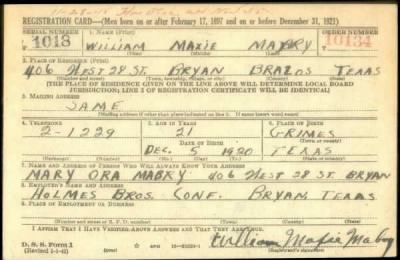 REGISTRATION CARD—(Men born on or after February 17, 1897 and on or before December 31, 1921)
SERIAL NUMBER 1. NAME (Print) ORDER NUMBER
1018 WILLIAM MAXIE MABRY 10134
(First) (Middle) (Last)
2. PLACE OF RESIDENCE (Print)
406 WEST 28 ST. BRYAN BRAZOS TEXAS
(Number and street) (Town, township, village, or city) (County) (State)
[THE PLACE OF RESIDENCE GIVEN ON THE LINE ABOVE WILL DETERMINE LOCAL BOARD
JURISDICTION; LINE 2 OF REGISTRATION CERTIFICATE WILL BE IDENTICAL]
3. MAILING ADDRESS
SAME
[Mailing address if other than place indicated on line 2. If same insert word same]
4. TELEPHONE 5. AGE IN YEARS 6. PLACE OF BIRTH
2-1229 21 GRIMES
DATE OF BIRTH (Town or county)
DEC. 5 1920 TEXAS
(Exchange) (Number) (Mo.) (Day) (Yr.) (State or country)
7. NAME AND ADDRESS OF PERSON WHO WILL ALWAYS KNOW YOUR ADDRESS
MARY ORA MABRY 406 WEST 28 ST. BRYAN
8. EMPLOYER'S NAME AND ADDRESS
HOLMES BROS. CONF. BRYAN, TEXAS
9. PLACE OF EMPLOYMENT OR BUSINESS
(Number and street or R. F. D. number) (Town) (County) (State)
I AFFIRM THAT I HAVE VERIFIED ABOVE ANSWERS AND THAT THEY ARE TRUE.
D. S. S. Form 1 William Maxie Mabry